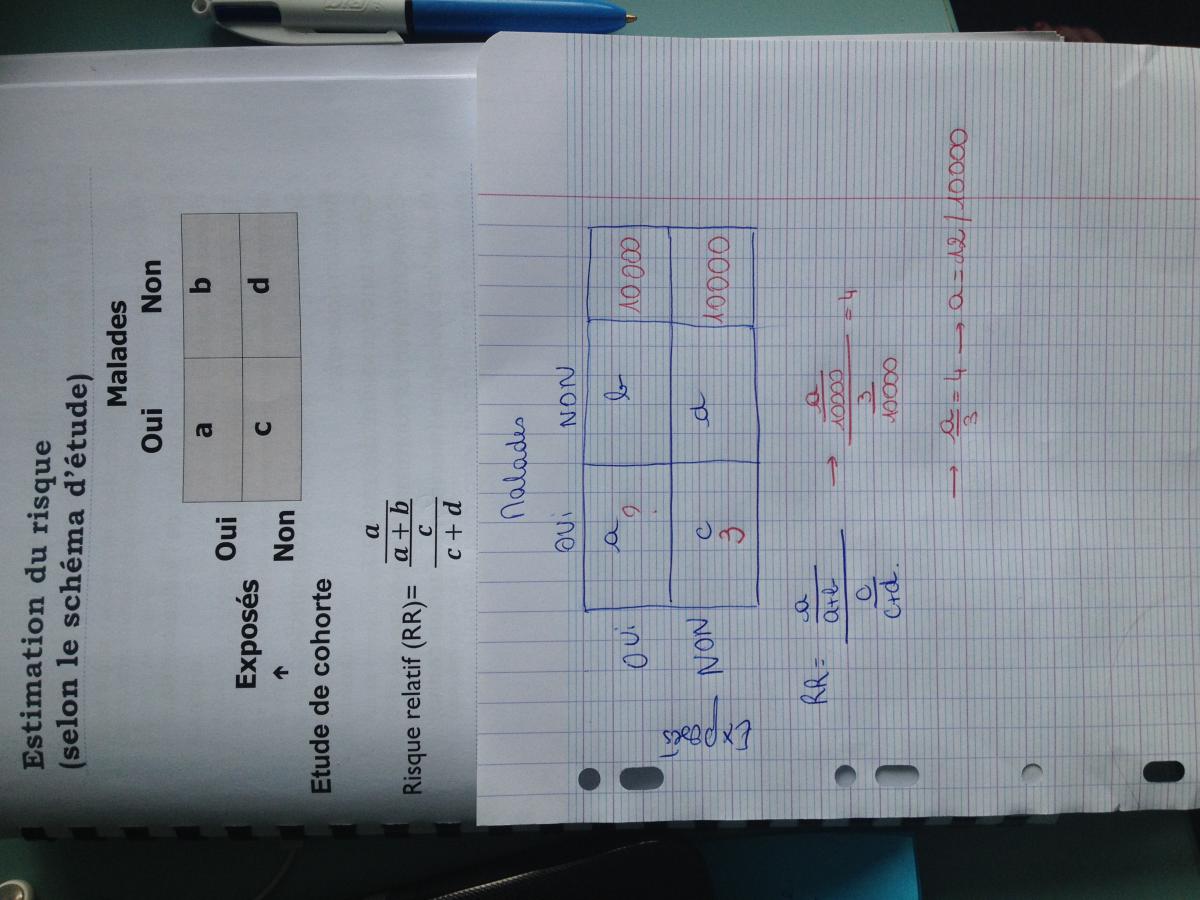 Estimation du risque
(selon le schéma d'étude)
Malades
Oui Non
Exposés Oui a b
Non c d
Etude de cohorte
Risque relatif (RR)=
a
a + b
c
c + d
Malades
OUI NON
OUI a ? b 10000
Exposés
NON c 3 d 10000
RR= a/a+b / c/c+d. → a/10000 / 3/10000 = 4
→ a/3 = 4 → a = 12 / 10000